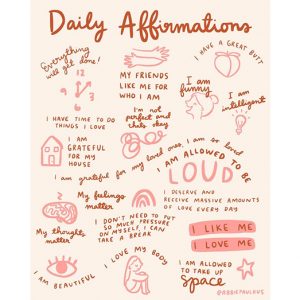 Daily Affirmations
Everything
will get done!
MY FRIENDS
LIKE ME FOR
WHO I AM
I HAVE A GREAT BUTT
I am
funny
I am
intelligent
I HAVE TIME TO DO
THINGS I LOVE
I'm not
perfect and
that's okay
I AM
GRATEFUL
FOR MY
HOUSE
I am grateful for my loved ones, I am so loved
I AM ALLOWED TO BE
LOUD
My feelings
matter
I DESERVE AND
RECEIVE MASSIVE AMOUNTS
OF LOVE EVERY DAY
My thoughts
matter
I DON'T NEED TO PUT
SO MUCH PRESSURE
ON MYSELF, I CAN
TAKE A BREAK
I LIKE ME
I LOVE ME
I LOVE MY BODY
I AM BEAUTIFUL
I AM ALLOWED
TO TAKE UP
space
@ABBIEPAULHUS